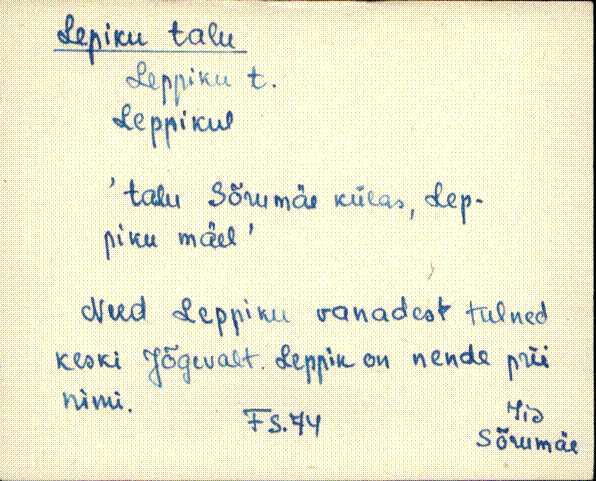 Lepiku talu
Leppiku t.
Leppikul
'talu Sõrumäe külas, Lep-
piku mäel'
Need Leppiku vanadest tulned
keski Jõgevalt. Leppik on nende prii
nimi.
FS.74
Sõrumäe